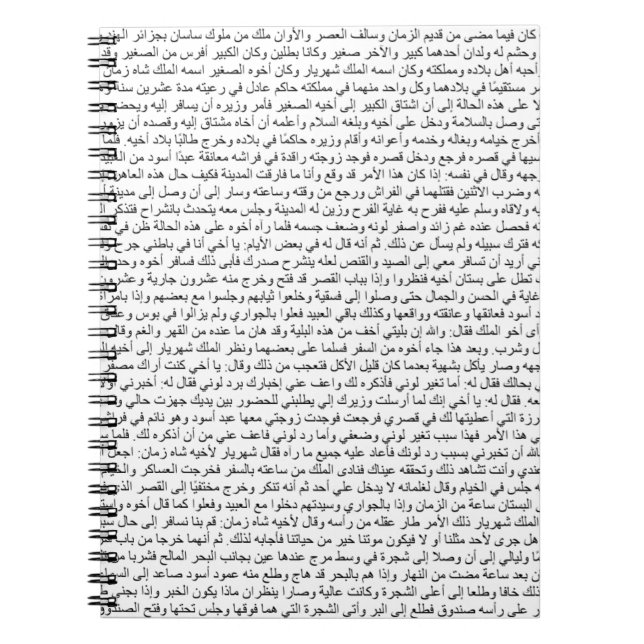 كان فيما مضى من قديم الزمان وسالف العصر والأوان ملك من ملوك ساسان بجزائر الهند
وحشم له ولدان أحدهما كبير والآخر صغير وكانا بطلين وكان الكبير أفرس من الصغير وقد
أحبه أهل بلاده ومملكته وكان اسمه الملك شهريار وكان أخوه الصغير اسمه الملك شاه زمان
مستقيمًا في بلادهما وكل واحد منهما في مملكته حاكم عادل في رعيته مدة عشرين سنة
على هذه الحالة إلى أن اشتاق الكبير إلى أخيه الصغير فأمر وزيره أن يسافر إليه ويحضر
وصل بالسلامة ودخل على أخيه وبلغه السلام وأعلمه أن أخاه مشتاق إليه وقصده أن
أخرج خيامه وبغاله وخدمه وأعوانه وأقام وزيره حاكمًا في بلاده وخرج طالبًا بلاد أخيه. فلما
في قصره فرجع ودخل قصره فوجد زوجته راقدة في فراشه معانقة عبدًا أسود من العبيد
وقال في نفسه: إذا كان هذا الأمر قد وقع وأنا ما فارقت المدينة فكيف حال هذه العاهرة
وضرب الاثنين فقتلهما في الفراش ورجع من وقته وساعته وسار إلى أن وصل إلى مدينة
ولاقاه وسلم عليه ففرح به غاية الفرح وزين له المدينة وجلس معه يتحدث بانشراح فتذكر
فحصل عنده غم زائد واصفر لونه وضعف جسمه فلما رآه أخوه على هذه الحالة ظن في
فترك سبيله ولم يسأل عن ذلك. ثم أنه قال له في بعض الأيام: يا أخي أنا في باطني جرح
أريد أن تسافر معي إلى الصيد والقنص لعله ينشرح صدرك فأبى ذلك فسافر أخوه وحده
تطل على بستان أخيه فنظروا وإذا بباب القصر قد فتح وخرج منه عشرون جارية وعشرون
غاية في الحسن والجمال حتى وصلوا إلى فسقية وخلعوا ثيابهم وجلسوا مع بعضهم وإذا بامرأة
أسود فعانقها وعانقته وواقعها وكذلك باقي العبيد فعلوا بالجواري ولم يزالوا في بوس
أخو الملك فقال: والله إن بليتي أخف من هذه البلية وقد هان ما عنده من القهر والغم
وشرب. وبعد هذا جاء أخوه من السفر فسلما على بعضهما ونظر الملك شهريار إلى أخيه
وصار يأكل بشهية بعدما كان قليل الأكل فتعجب من ذلك وقال: يا أخي كنت أراك مصفر
بحالك فقال له: أما تغير لوني فأذكره لك واعف عني إخبارك برد لوني فقال له: أخبرني
فقال له: يا أخي إنك لما أرسلت وزيرك إلي يطلبني للحضور بين يديك جهزت حالي
التي أعطيتها لك في قصري فرجعت فوجدت زوجتي معها عبد أسود وهو نائم في
هذا الأمر فهذا سبب تغير لوني وضعفي وأما رد لوني فاعف عني من أن أذكره لك. فلما
أن تخبرني بسبب رد لونك فأعاد عليه جميع ما رآه فقال شهريار لأخيه شاه زمان: اجعل
وأنت تشاهد ذلك وتحققه عيناك فنادى الملك من ساعته بالسفر فخرجت العساكر والخيام
جلس في الخيام وقال لغلمانه لا يدخل علي أحد ثم أنه تنكر وخرج مختفيًا إلى القصر الذي
البستان ساعة من الزمان وإذا بالجواري وسيدتهم دخلوا مع العبيد وفعلوا كما قال أخوه
الملك شهريار ذلك الأمر طار عقله من رأسه وقال لأخيه شاه زمان: قم بنا نسافر إلى حال
هل جرى لأحد مثلنا أو لا فيكون موتنا خير من حياتنا فأجابه لذلك. ثم أنهما خرجا من باب
وليالي إلى أن وصلا إلى شجرة في وسط مرج عندها عين بجانب البحر المالح فشربا من
بعد ساعة مضت من النهار وإذا هم بالبحر قد هاج وطلع منه عمود أسود صاعد إلى السماء
ذلك خافا وطلعا إلى أعلى الشجرة وكانت عالية وصارا ينظران ماذا يكون الخبر وإذا بجني
على رأسه صندوق فطلع إلى البر وأتى الشجرة التي هما فوقها وجلس تحتها وفتح الصندوق